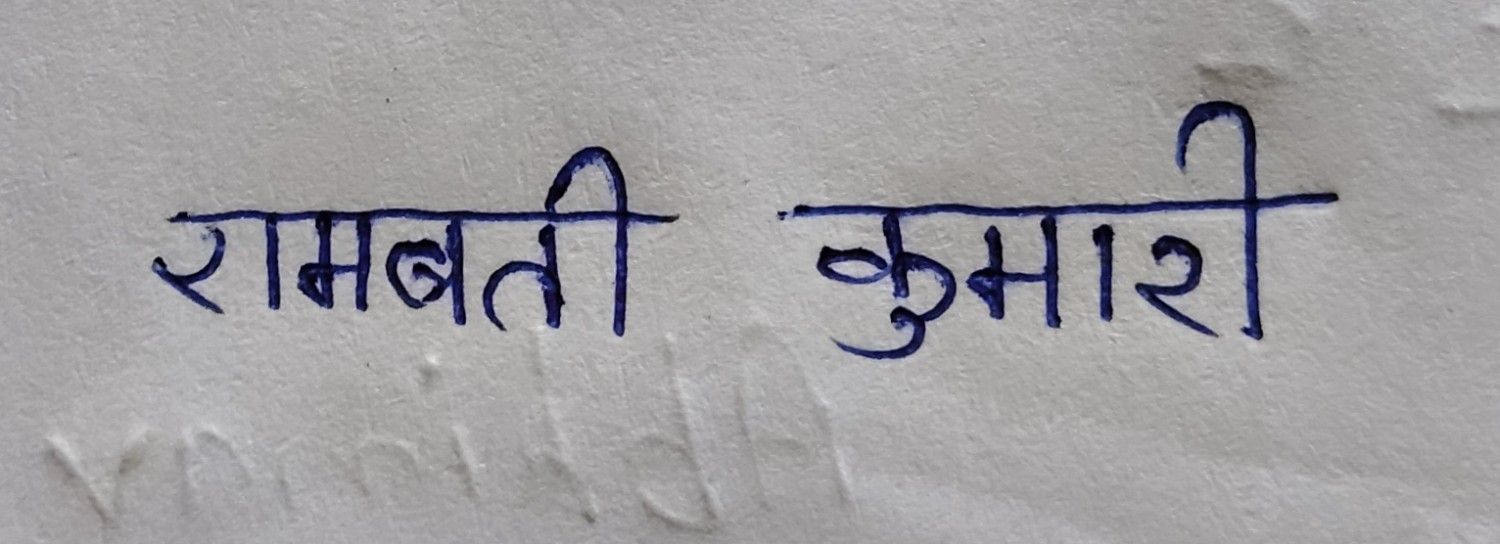 रामबती कुमारी